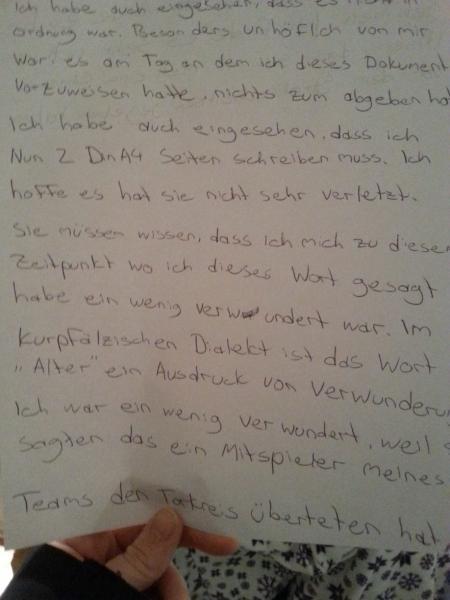 Ich habe auch eingesehen, dass es nicht in
ordnung war. Besonders unhöflich von mir
war es am Tag an dem ich dieses Dokument
vorzuweisen hatte, nichts zum abgeben
Ich habe auch eingesehen, dass ich
Nun 2 DinA4 Seiten schreiben muss. Ich
hoffe es hat sie nicht sehr verletzt.
Sie müssen wissen, dass ich mich zu
Zeitpunkt wo ich dieses Wort gesagt
habe ein wenig verwundert war. Im
Kurpfälzischen Dialekt ist das Wort
„Alter" ein Ausdruck von
Ich war ein wenig verwundert, weil
sagten das ein Mitspieler meines
Teams den Torkreis überteten hat